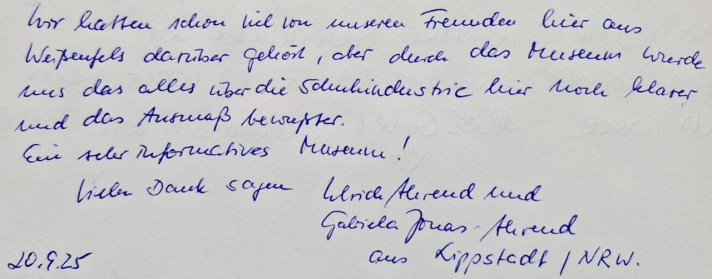 Wir hatten schon viel von unseren Freunden hier aus
Weißenfels darüber gehört, aber durch das Museum wurde
uns das alles über die Schuhindustrie hier noch klarer
und das Ausmaß bewusster.
Ein sehr informatives Museum!
Vielen Dank sagen Ulrich Ahrend und
Gabriela Jonas-Ahrend
aus Lippstadt / NRW.
20.9.25